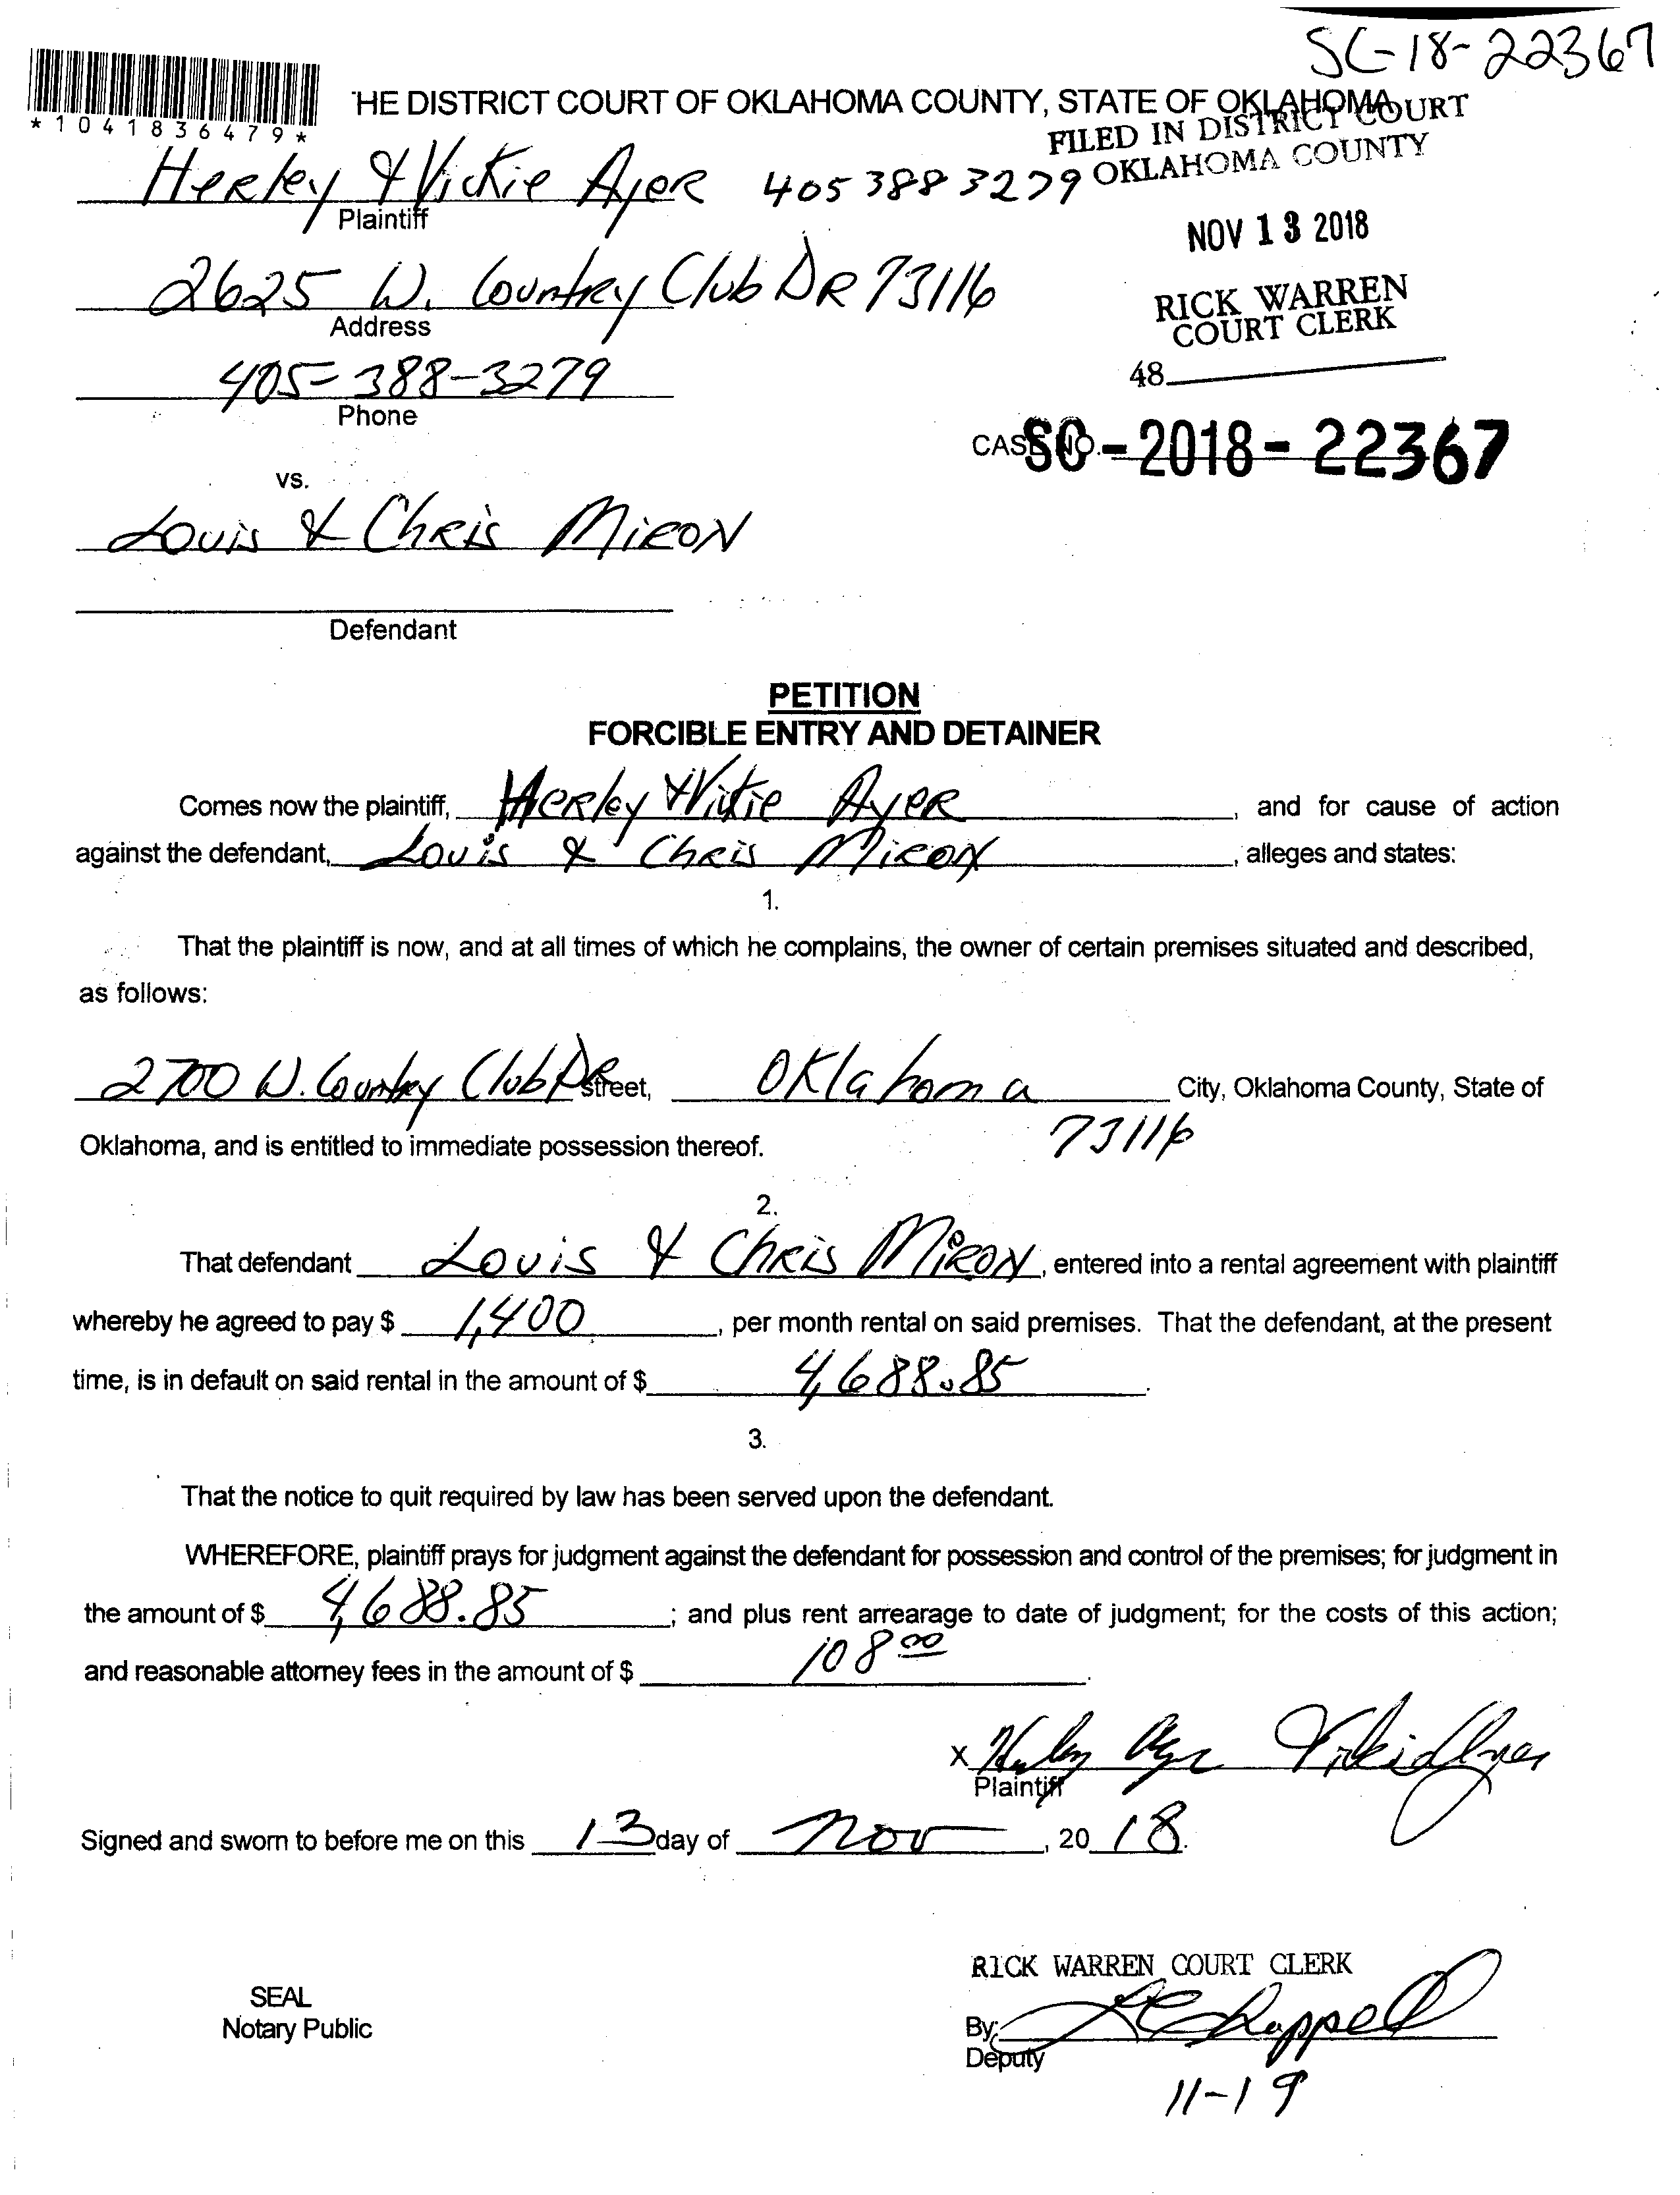 SC-18-22367
*1041836479*
HE DISTRICT COURT OF OKLAHOMA COUNTY, STATE OF OKLAHOMA
FILED IN DISTRICT COURT
OKLAHOMA COUNTY
Herley & Vickie Ayer 405 388 3279
Plaintiff
NOV 13 2018
2625 W. Country Club DR 73116
Address
RICK WARREN
COURT CLERK
405-388-3279
Phone
48
CASE NO. SC-2018-22367
vs.
Louis & Chris Miron
Defendant
PETITION
FORCIBLE ENTRY AND DETAINER
Comes now the plaintiff, Herley & Vickie Ayer, and for cause of action
against the defendant, Louis & Chris Miron, alleges and states:
1.
That the plaintiff is now, and at all times of which he complains, the owner of certain premises situated and described,
as follows:
2700 W. Country Club DR street, Oklahoma City, Oklahoma County, State of
Oklahoma, and is entitled to immediate possession thereof. 73116
2.
That defendant Louis & Chris Miron, entered into a rental agreement with plaintiff
whereby he agreed to pay $ 1,400, per month rental on said premises. That the defendant, at the present
time, is in default on said rental in the amount of $ 4,688.85.
3.
That the notice to quit required by law has been served upon the defendant.
WHEREFORE, plaintiff prays for judgment against the defendant for possession and control of the premises; for judgment in
the amount of $ 4,688.85; and plus rent arrearage to date of judgment; for the costs of this action;
and reasonable attorney fees in the amount of $ 108 00.
X Herley Ayer Vickie Ayer
Plaintiff
Signed and sworn to before me on this 13 day of Nov, 20 18.
RICK WARREN COURT CLERK
SEAL
Notary Public
By: Chappell
Deputy
11-19